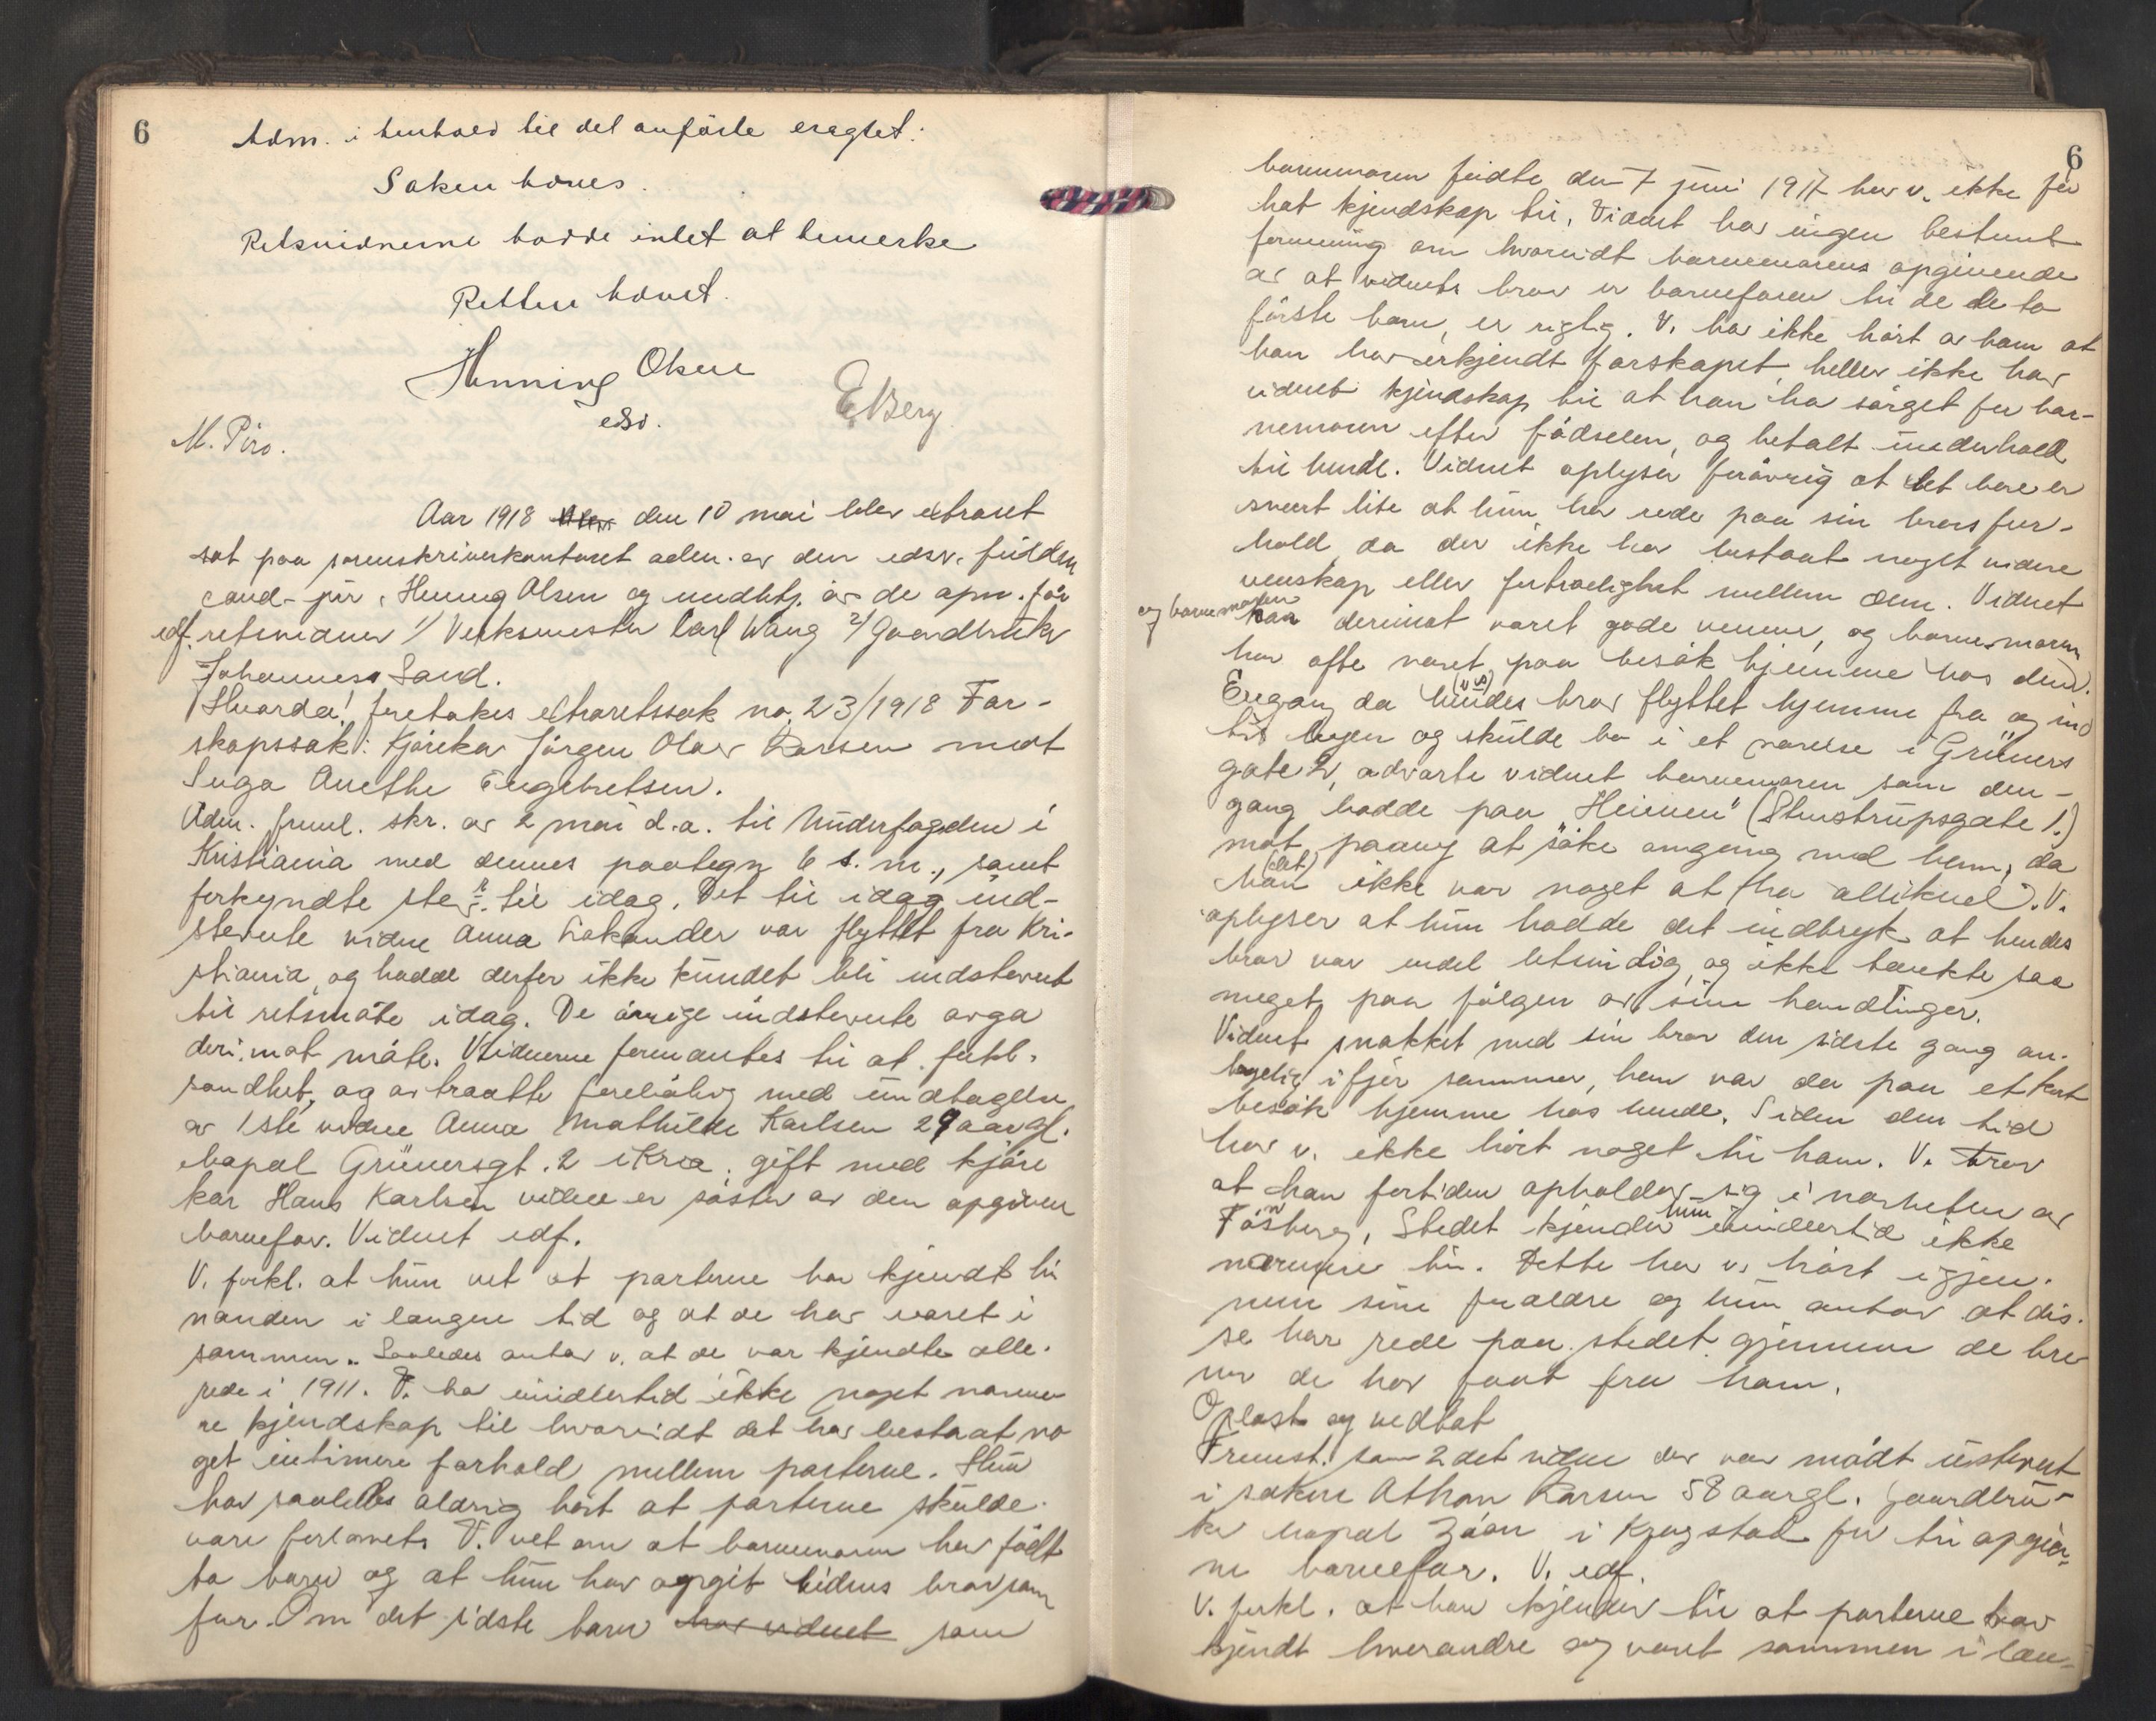 6
Adm. i henhold til det anførte eragtet:
Saken hæves.
Retsvidnerne hadde intet at bemerke
Retten hævet.
Henning Olsen
edsv.
E Berg
M. Piro.
Aar 1918 den 10 mai blev extraret
sat paa sorenskriverkontoret adm. av den edsv. fuldm
cand. jur. Henning Olsen og meddelt. av de opn. før
edf. retsvidner 1/ Verksmester Carl Wang 2/ Gaardbruker
Johannes Sand.
Hvorda! foretokes extraretssak no. 23/1918 Far-
skapssak: Kjørekar Jörgen Olav Larsen mot
Inga Anethe Engebretsen.
Adm. freml. skr. av 2 mai d.a. til Underfogden i
Kristiania med dennes paategn 6 s. m., samt
forkyndte stevn. til idag. Det til idag ind-
stevnte vidne Anna Lakander var flyttet fra Kri-
stiania, og hadde derfor ikke kundet bli indstevnt
til retsmöte idag. De övrige indstevnte avga
derimot möte. Vidnerne formantes til at forkl.
sandhet, og avtraatte foreløbig med undtagelse
av 1ste vidne Anna Mathilde Karlsen 29 aar gl.
bopæl Grünersgt. 2 i Kria. gift med kjöre
kar Hans Karlsen vidne er söster av den opgivne
barnefar. Vidnet edf.
V. forkl. at hun vet at parterne har kjendt hi
nanden i længere tid og at de har været i
sammen. Saaledes antar v. at de var kjendte alle-
rede i 1911. V. har imidlertid ikke noget nærme
re kjendskap til hvorvidt det har bestaat no
get intimere forhold mellem parterne. Hun
har saaledes aldrig hört at parterne skulde
være forlovet. V. vet om at barnemoren har födt
to barn og at hun har opgit vidnets bror som
far. Om det sidste barn har vidnet som
6
barnemoren fødte den 7 juni 1917 har v. ikke før
hat kjendskap til. Vidnet har ingen bestemt
formening om hvorvidt barnemorens opgivende
av at vidnets bror er barnefaren til de to
förste barn, er rigtig. V. har ikke hört av ham at
han har erkjendt farskapet, heller ikke har
vidnet kjendskap til at han har sörget for bar-
nemoren efter födselen, og betalt underhold
til hende. Vidnet oplyser forövrig at det bare er
svært lite at hun har rede paa sin brors for-
hold, da der ikke har bestaat noget videre
venskap eller fortrolighet mellem dem. Vidnet
og barnemoren har derimot været gode venner, og barnemoren
har ofte været paa besök hjemme hos dem.
Engang da hendes (vs) bror flyttet hjemme fra og ind
til byen og skulde bo i et værelse i Grüners
gate 2, advarte vidnet barnemoren som den-
gang bodde paa "Heimen" (Stenstrupsgate 1.)
mot paany at söke omgang med ham, da
han (det) ikke var noget at tra allikevel. V.
oplyser at hun hadde det indtryk at hendes
bror var endel letsindig, og ikke tænkte saa
meget paa fölgen av sine handlinger.
Vidnet snakket med sin bror den sidste gang an-
tagelig i fjor sommer, han var da paa et kort
besök hjemme hos hende. Siden den tid
har v. ikke hört noget til ham. V. tror
at han fortiden opholder sig i nærheten av
Tönsberg, Stedet kjender hun imidlertid ikke
nærmere til. Dette har v. hört igjen-
nem sine forældre og hun antar at dis-
se har rede paa stedet gjennem de bre
ver de har faat fra ham.
Oplæst og vedtat
Fremst. som 2det vidne der var mödt ustevnt
i saken Athan Larsen 58 aar gl. gaardbru-
ker bopæl i Krogstad far til opgiv-
ne barnefar. V. edf.
V. forkl. at han kjender til at parterne har
kjendt hverandre og været sammen i læn-